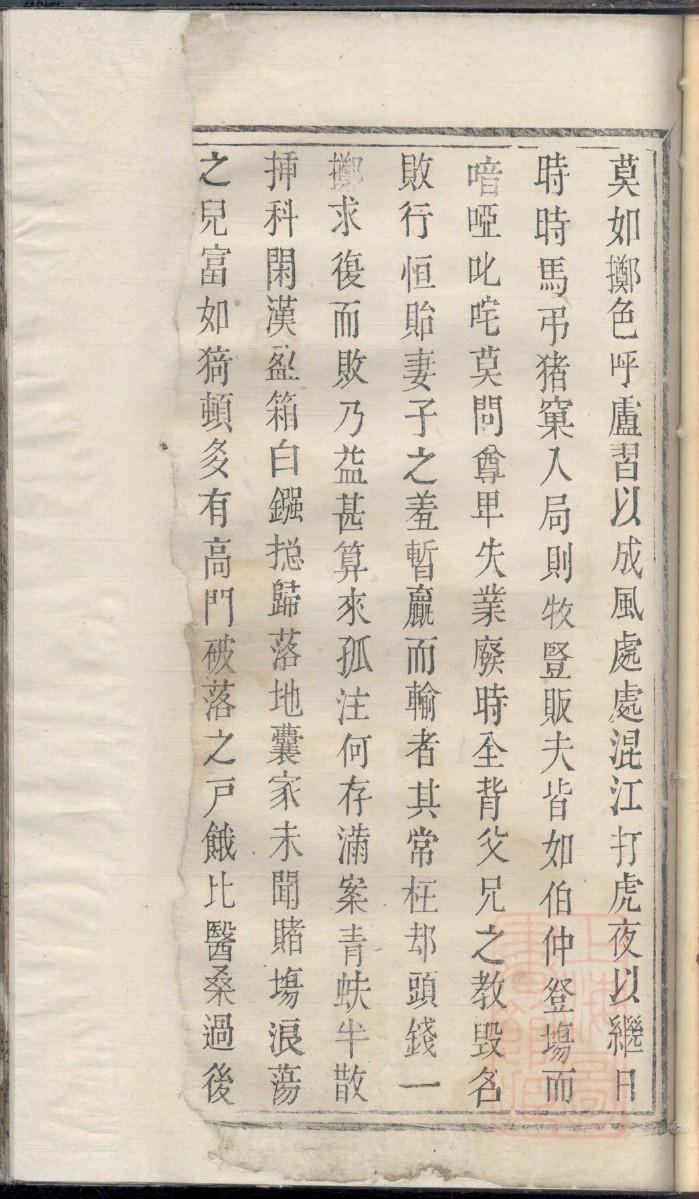 莫如擲色呼盧習以成風處處混江打虎夜以繼日
時時馬弔猪窠入局則牧豎販夫皆如伯仲登塲而
喑啞叱咤莫問尊卑失業廢時全背父兄之教毀名
敗行恒貽妻子之羞暫贏而輸者其常枉却頭錢一
擲求復而敗乃益甚算來孤注何存滿案青蚨半散
挿科閑漢盈箱白鏹摠歸落地囊家未聞賭塲浪蕩
之兒富如猗頓多有高門破落之戸餓比翳桑過後